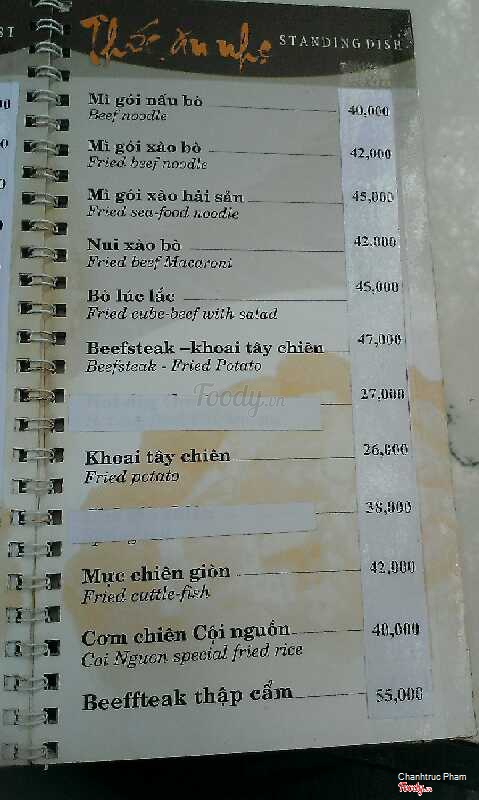 Thức ăn nhẹ STANDING DISH
Mì gói nấu bò 40,000
Beef noodle
Mì gói xào bò 42,000
Fried beef noodle
Mì gói xào hải sản 45,000
Fried sea-food noodle
Nui xào bò 42.000
Fried beef Macaroni
Bò lúc lắc 45,000
Fried cube-beef with salad
Beefsteak –khoai tây chiên 47,000
Beefsteak - Fried Potato
27,000
Foody.vn
Khoai tây chiên 26,000
Fried potato
38,000
Mực chiên giòn 42,000
Fried cuttle-fish
Cơm chiên Cội nguồn 40,000
Coi Nguon special fried rice
Beeffteak thập cẩm 55,000
Chanhtruc Pham
Foody.vn